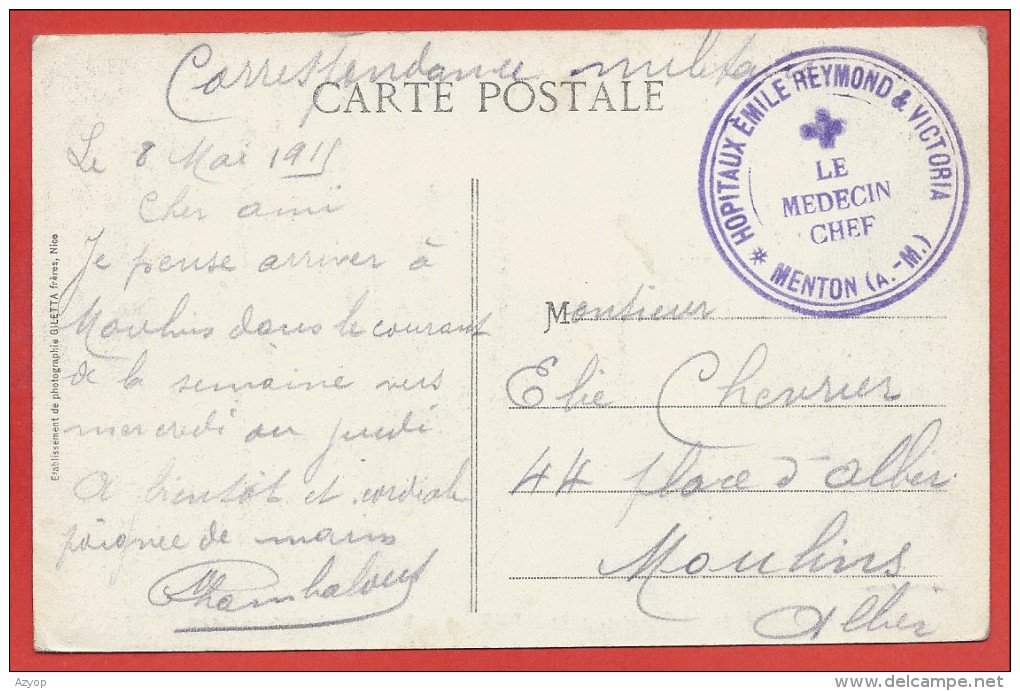 Correspondance milita
CARTE POSTALE
Le 8 Mai 1915
Cher ami
Je pense arriver à
Moulins dans le courant
de la semaine vers
mercredi ou jeudi.
A bientôt et cordiale
poignée de mains
Etablissement de photographie GILETTA frères, Nice
* HOPITAUX ÉMILE REYMOND & VICTORIA
LE
MEDECIN
CHEF
MENTON (A.-M.)
Monsieur
Elie Chevrier
44 place d'allier
Moulins
Allier
Azyop
www.delcampe.net